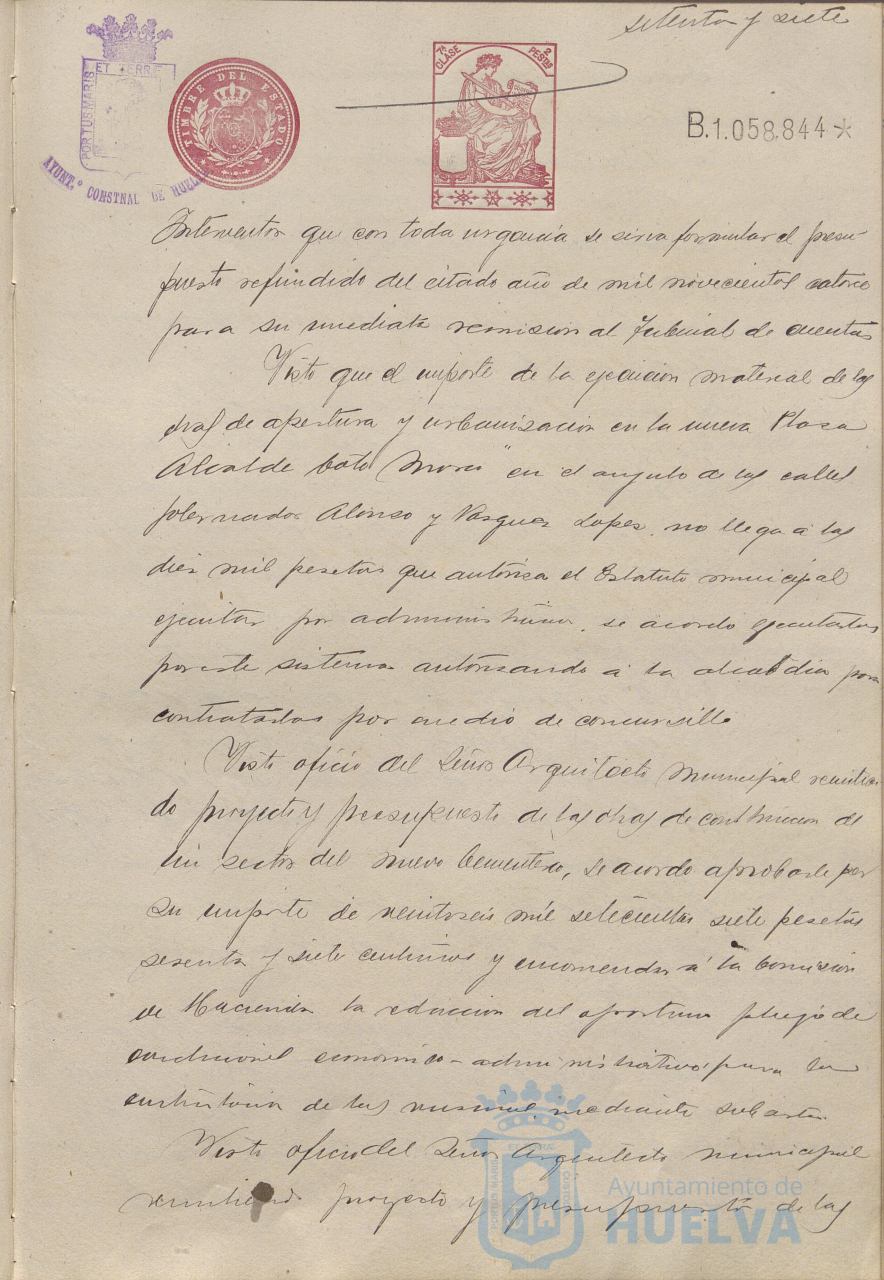 setenta y siete
PORTUS MARIS ET TERRE
AYUNT.º CONSTNAL DE HUELVA
TIMBRE DEL ESTADO
7ª CLASE 2 PESTAS
B.1.058.844*
Interventor que con toda urgencia se sirva formular el presu-
puesto refundido del citado año de mil novecientos catorce
para su inmediata remision al Tribunal de cuentas
Visto que el importe de la ejecucion material de las
obras de apertura y urbanizacion en la nueva Plaza
Alcalde Coto Mora" en el angulo de las calles
Gobernador Alonso y Vasquez Lopez, no llega á las
diez mil pesetas que autoriza el Estatuto municipal
ejecutar por administracion, se acordo ejecutarlas
por este sistema autorizando á la alcaldia para
contratarlas por medio de concursillo
Visto oficio del Señor Arquitecto Municipal remitien-
do proyecto y presupuesto de las obras de construccion de
un sector del nuevo Cementerio, se acordo aprobarle por
su importe de veintiseis mil setecientas siete pesetas
sesenta y siete centimos y encomendar á la Comision
de Hacienda la redaccion del oportuno pliego de
condiciones economico-administrativas para la
de las mismas mediante subasta
Visto oficio del Señor Arquitecto municipal
remitiendo proyecto y presupuesto de las
Ayuntamiento de
HUELVA